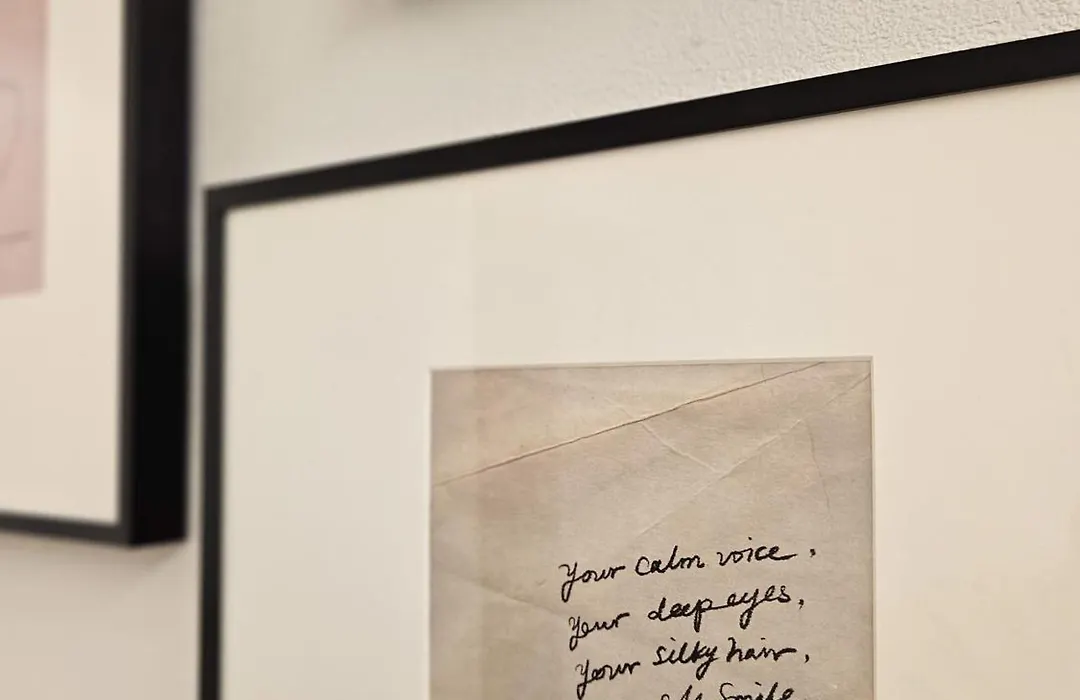 Your calm voice,
Your deep eyes,
Your silky hair,
smile